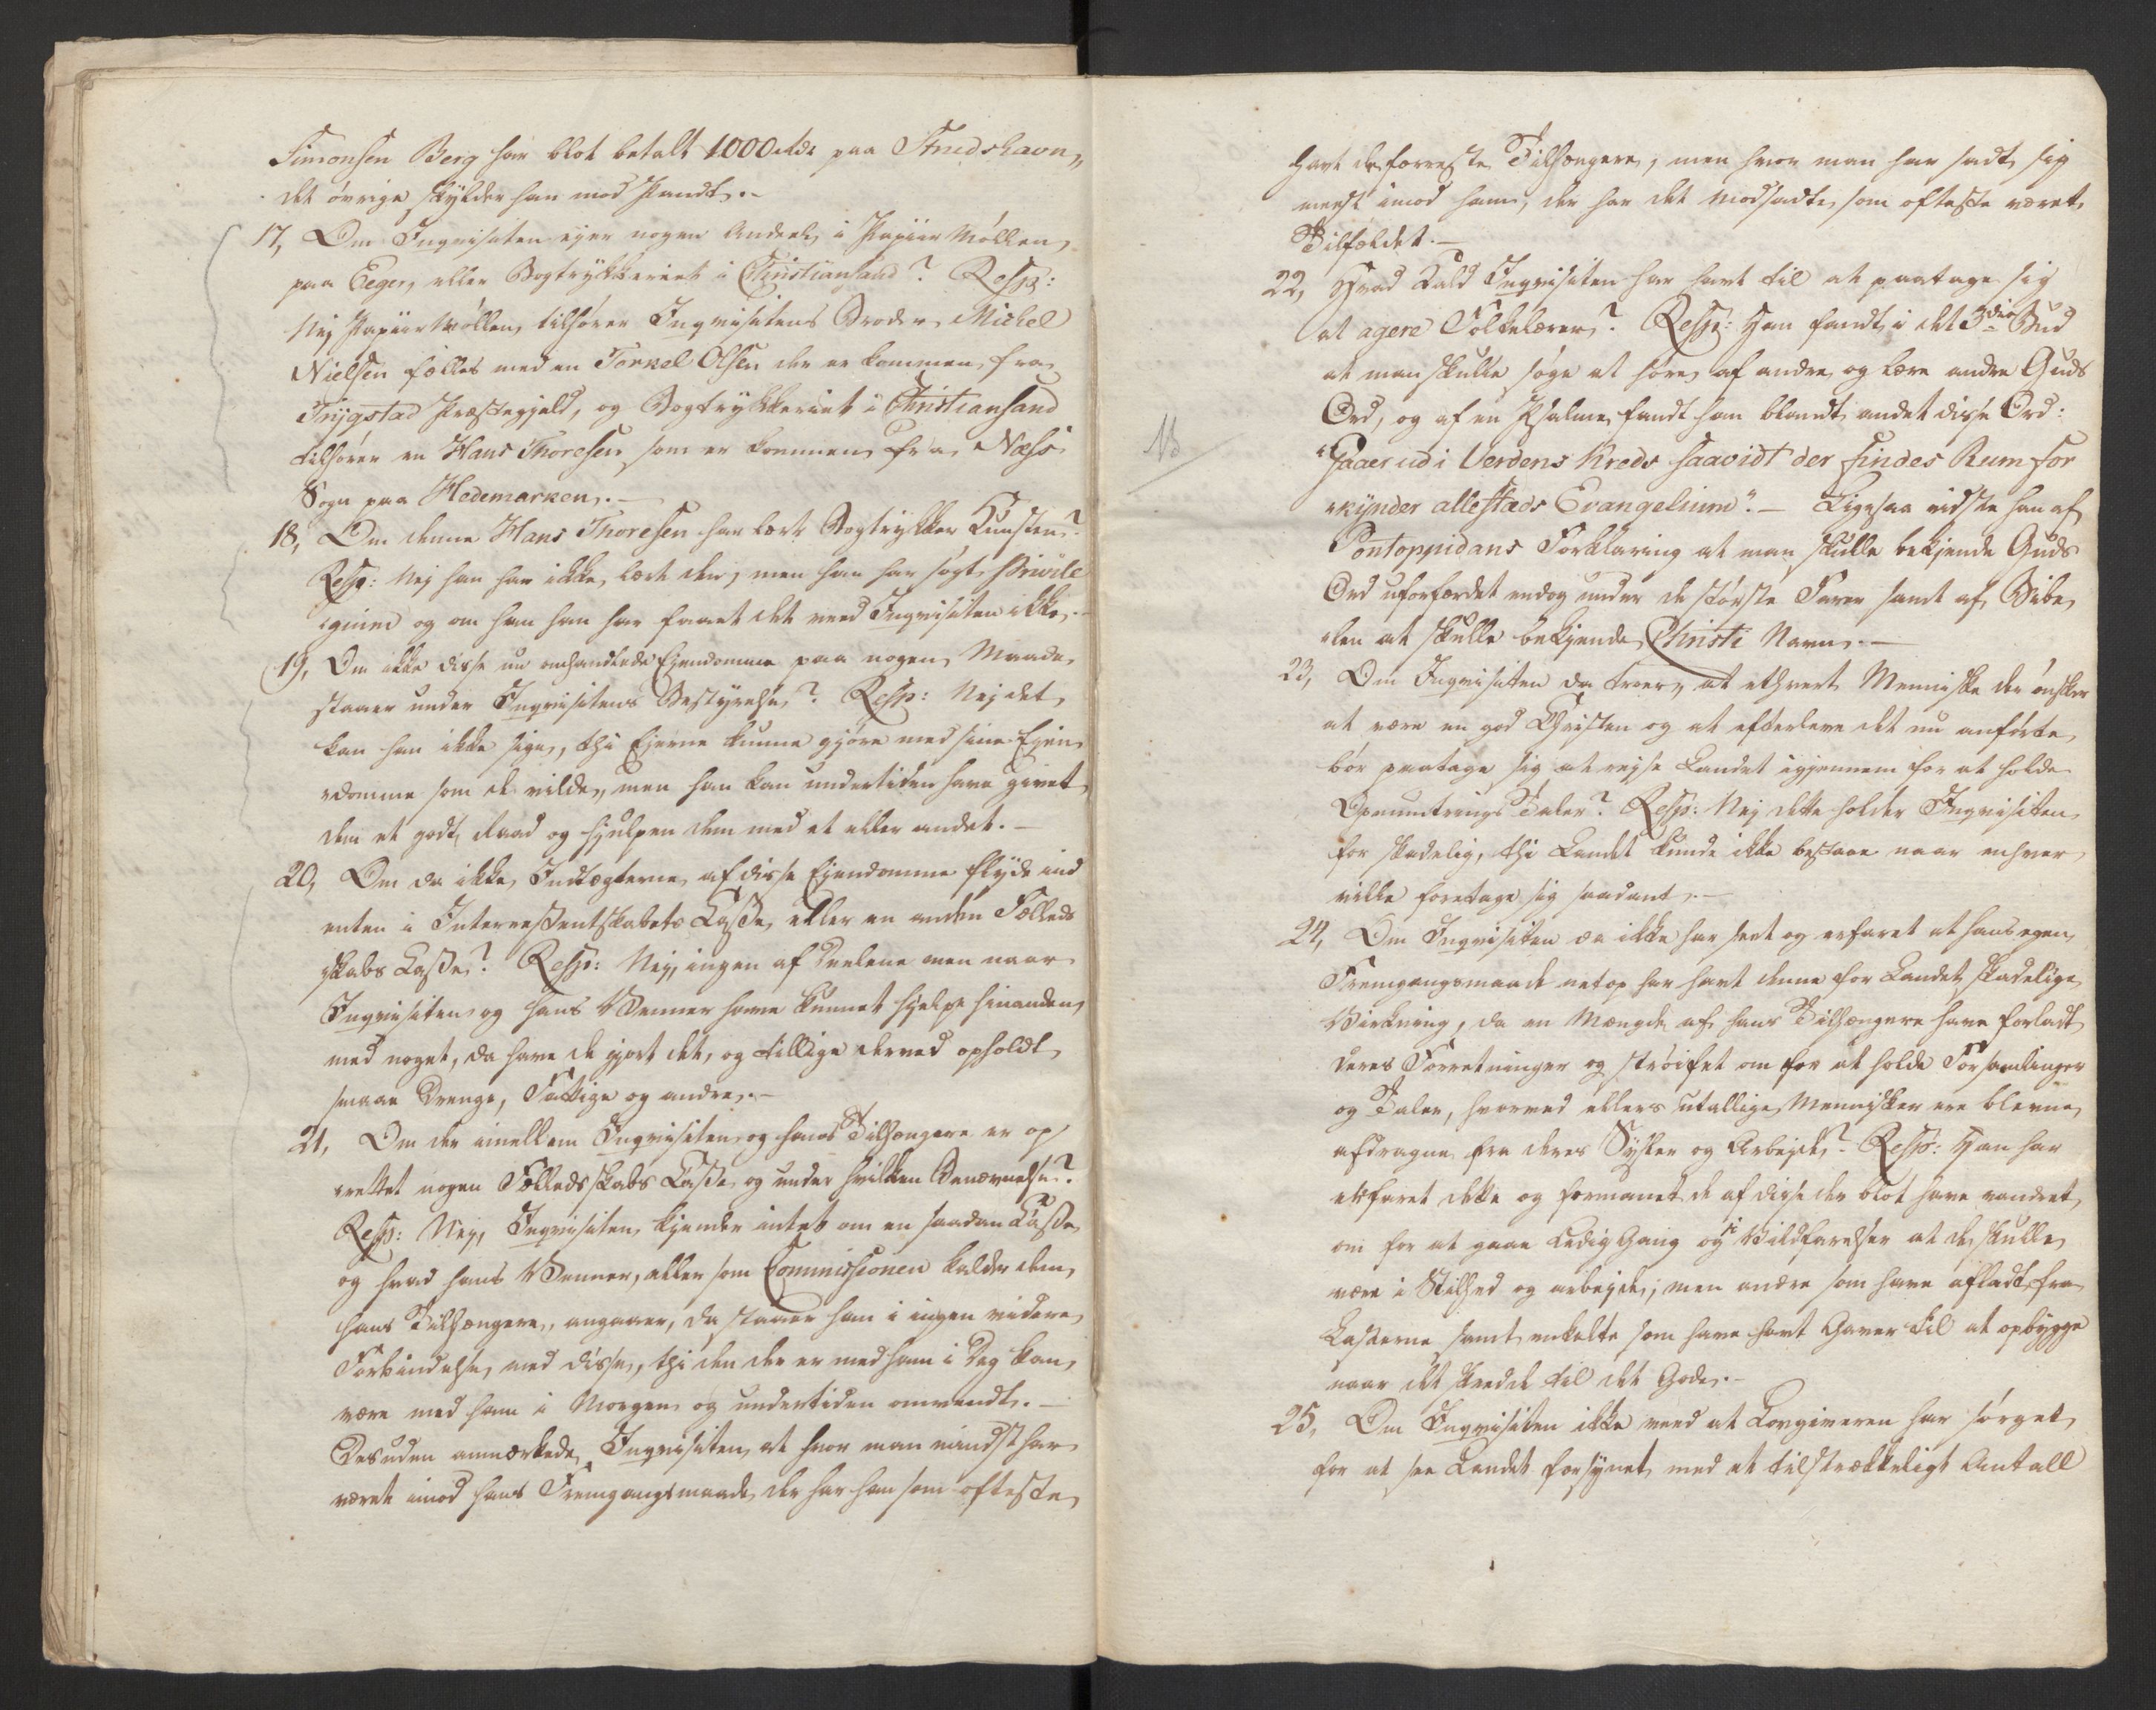 Simonsen Berg har blot betalt 1000 rdr paa Strudshavn,
det øvrige skylder han mod Pandt. -
17, Om Inqvisiten ejer nogen Andeel i Papiir Møllen
paa Eeger, eller Bogtrykkeriet i Christiansand? Resp:
Nej Papiir Møllen tilhører Inqvisitens Broder Michel
Nielsen fælles med en Torkel Olsen der er kommen fra
Trygstad Præstegjeld, og Bogtrykkeriet i Christiansand
tilhører en Hans Thoresen som er kommen fra Næss
Sogn paa Hedemarken. -
18, Om denne Hans Thoresen har lært Bogtrykker Kunsten?
Resp: Nej han har ikke lært den, men han har søgt Privile
gium og om han har faaet det veed Inqvisiten ikke. -
19, Om ikke disse nu omhandlede Ejendomme paa nogen Maade
staaer under Inqvisitens Bestyrelse? Resp: Nej det
kan han ikke sige, thi Ejerne kunne gjøre med sine Ejen
domme som de vilde, men han kan undertiden have givet
dem et godt Raad og hjulpen dem med et eller andet. -
20, Om da ikke Indtægterne af disse Ejendomme flyde ind
enten i Interessentskabets Casse, eller en anden Fælleds
skabs Casse? Resp: Nej, ingen af Deelene men naar
Inqvisiten og hans Venner have kunnet hjelpe hinanden
med noget, da have de gjort det, og tillige derved opholdt
smaae Drenge, Fattige og andre. -
21, Om der imellem Inqvisiten og hans Tilhængere er op
rettet nogen Fælledsskabs Casse, og under hvilken Benævnelse?
Resp: Nej, Inqvisiten kjender intet om en saadan Casse,
og hvad hans Venner, eller som Commissionen kalder dem,
hans Tilhængere, angaaer, da staaer han i ingen videre
Forbindelse med disse, thi den der er med ham i Dag kan
være mod ham i Morgen og undertiden omvendt. -
Desuden anmærkede Inqvisiten, at hvor man mindst har
været imod hans Fremgangsmaade der har han som ofteste
havt de færreste Tilhængere, men hvor man har sadt sig
meest imod ham, der har det modsadte som ofteste været
Tilfældet. -
22, Hvad Kald Inqvisiten har havt til at paatage sig
at agere Folkelærer? Resp: Han fandt i det 3die Bud
at man skulle søge at høre af andre og lære andre Guds
Ord, og af en Psalme fandt han blandt andet disse Ord:
"Gaaer ud i Verdens Kreds saavidt der findes Rum for
"kynder allestæds Evangelium". - Ligesaa vidste han af
Pontoppidans Forklaring at man skulle bekjende Guds
Ord uforfærdet endog under de største Farer samt af Bibe
len at skulle bekjende Christi Navn. -
23, Om Inqvisiten da troer, at ethvert Menniske der ønsker
at være en god Christen og at efterleve det nu anførte,
bør paatage sig at rejse Landet igjennem for at holde
Opmuntrings Taler? Resp: Nej dette holder Inqvisiten
for skadelig, thi Landet kunde ikke bestaae naar enhver
ville foretage sig saadant. -
24, Om Inqvisiten da ikke har seet og erfaret at hans egen
Fremgangsmaade netop har havt denne for Landet skadelige
Virkning, da en Mængde af hans Tilhængere have forladt
deres Forretninger og strøifet om for at holde Forsamlinger
og Taler, hvorved ellers utallige Mennisker ere blevne
afdragne fra deres Sysler og Arbejde? Resp: Han har
erfaret dette og formanet de af disse der blot have vandret
om for at gaae Ledig Gang og i Vildfarelser at de skulle
være i Stilhed og arbejde, men andre som have afladt fra
Lasterne samt enkelte som have havt Gaver til at opbygge
naar det skedde til det Gode. -
25, Om Inqvisiten ikke veed at Lovgiveren har sørget
for at see Landet forsynet med et tilstrækkeligt Antall